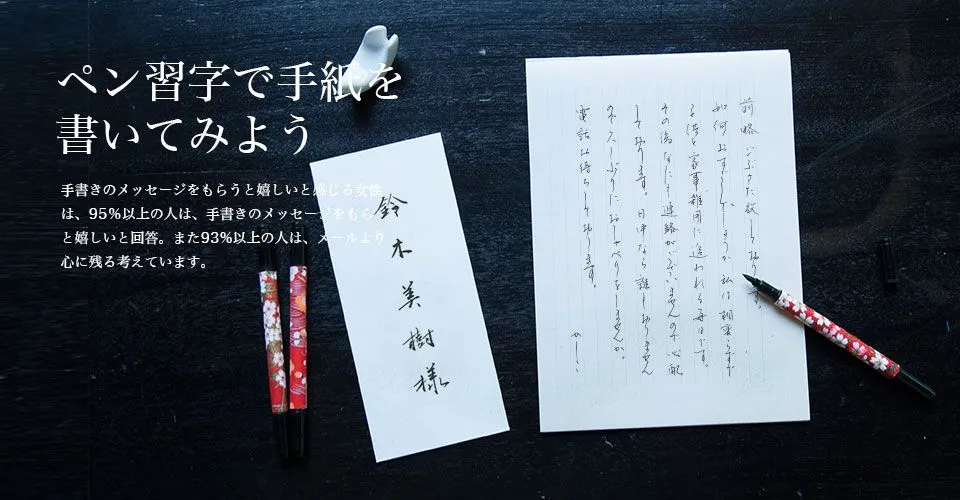 ペン習字で手紙を
書いてみよう
手書きのメッセージをもらうと嬉しいと感じる女性
は、95%以上の人は、手書きのメッセージをもらう
と嬉しいと回答。また93%以上の人は、メールより
心に残る考えています。
鈴木美樹様
前略 ごぶさた致しております。
如何お過ごしでしょうか 私は相変らず
子供と家事雑用に追われる毎日です。
その後なにも連絡がございませんので心配
しております。日中なら誰もおりません
の久しぶりにおしゃべりをしませんか。
電話お待ちしております。
かしこ